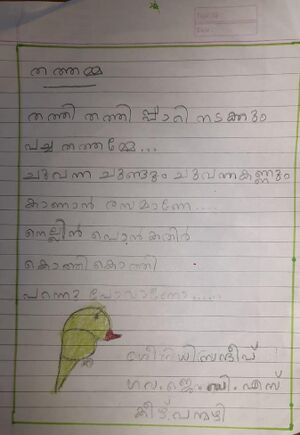 തത്തമ്മ
തത്തി തത്തി പ്പാറി നടക്കും
പച്ച തത്തമ്മേ...
ചുവന്ന ചുണ്ടും ചുവന്നകണ്ണും
കാണാൻ രസമാണേ....
നെല്ലിൻ പൊൻകതിർ
കൊത്തി കൊത്തി
പറന്നു പോവാണോ.....
ഗവ.ജെ.ബി.എസ്